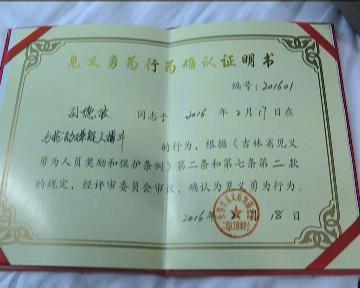 见义勇为行为确认证明书
编号:201601
孙德波 同志于 2016 年 2 月 17 日在
与抢劫嫌疑人搏斗 的行为,根据《吉林省见义
勇为人员奖励和保护条例》第二条和第七条第二款
的规定,经评审委员会审议,确认为见义勇为行为。
2016年 月 18 日